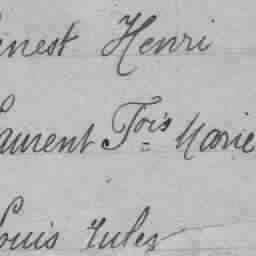 rnest Henri
Laurent Fois Marie
Louis Jules